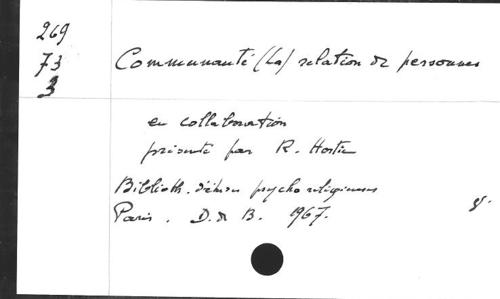 269
73
3
Communauté (La) relation de personnes
en collaboration
présenté par R. Hostie
Biblioth. d'études psycho religieuses
Paris. D. d B. 1967.